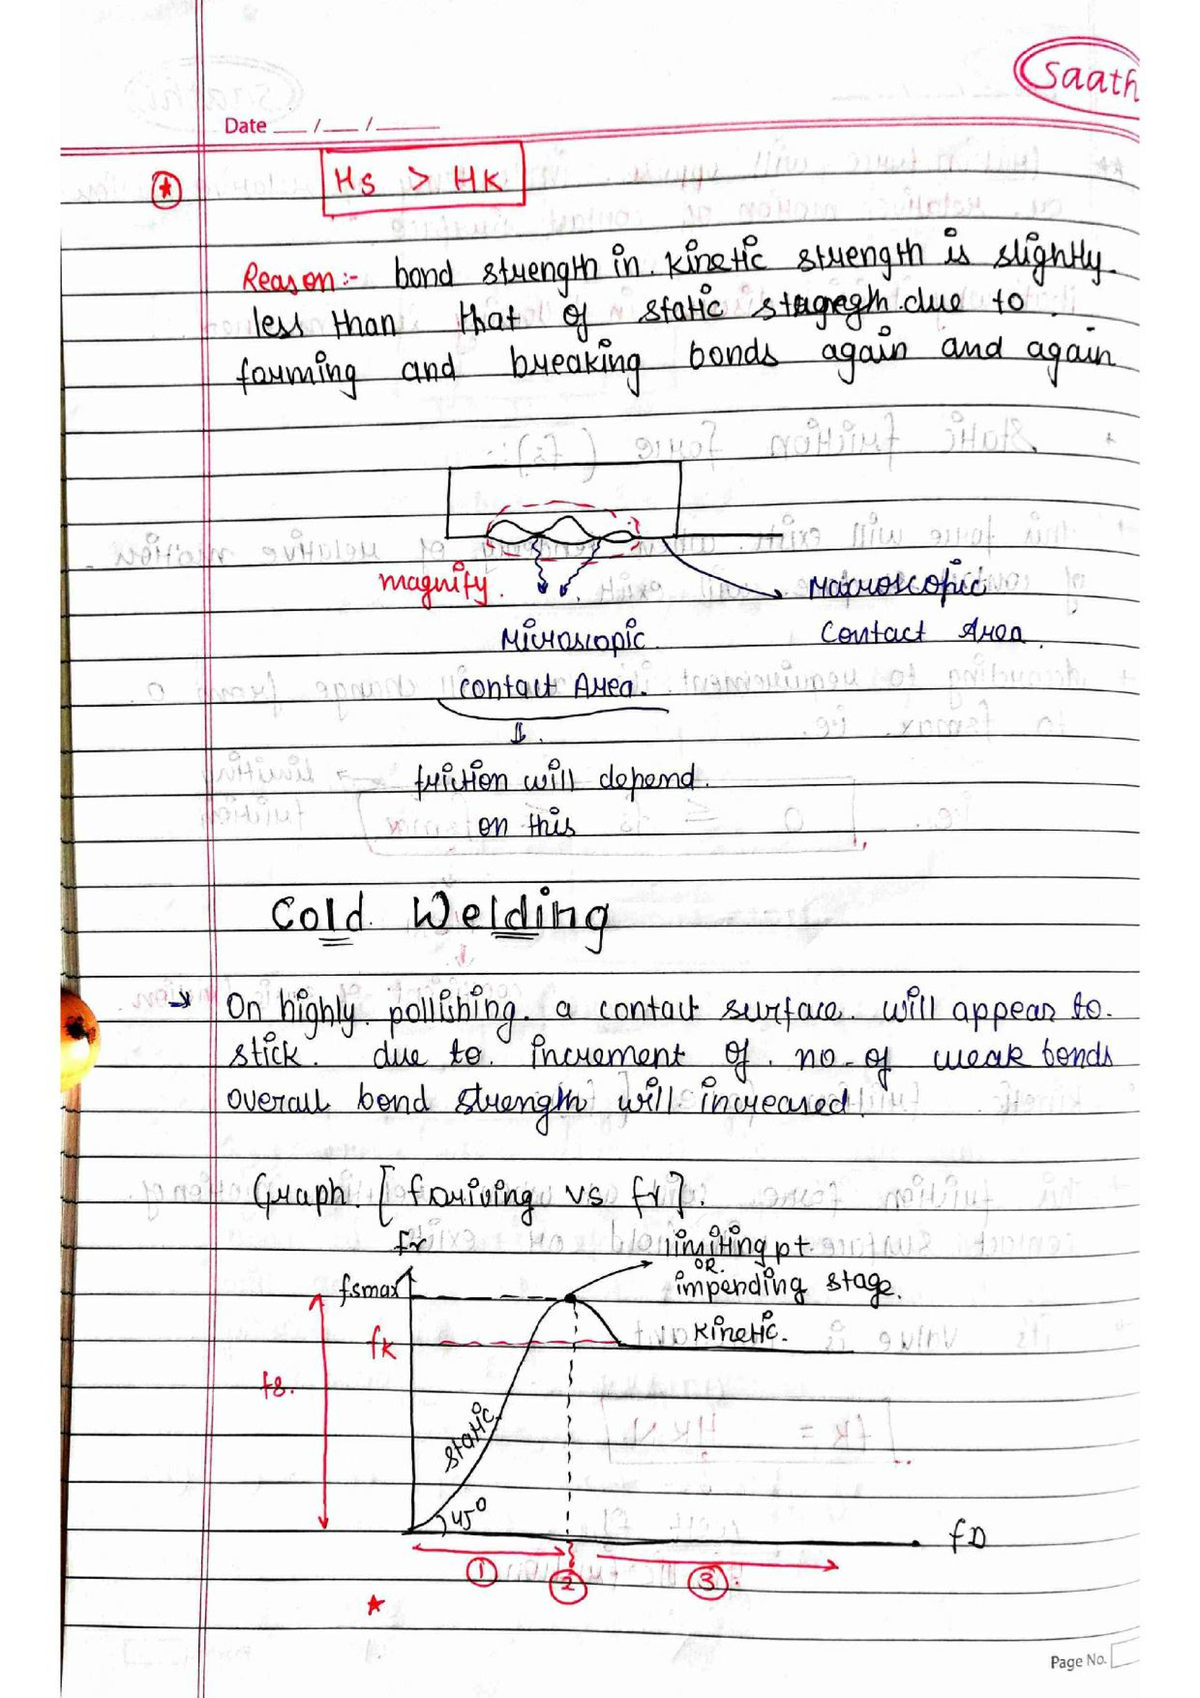 Saath
Date __/__/____
μs > μk
Reason:- bond strength in kinetic strength is slightly
less than that of static stregegth due to
forming and breaking bonds again and again
magnify.
Macroscopic
Contact Area
Microscopic
contact Area.
friction will depend.
on this
Cold Welding
→ On highly pollishing a contact surface will appear to
stick. due to increment of no. of weak bonds
overall bond strength will increased.
Graph. [fDriving vs fr].
fr
limiting pt.
OR.
impending stage.
fsmax
kinetic.
fk
fs.
static
45°
fD
① ② ③
Page No.